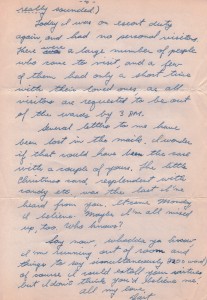 really sounded.)
Today I was on escort duty
again, and had no personal visitors.
There were a large number of people
who come to visit, and a few
of them had only a short time
with their loved ones, as all
visitors are requested to be out
of the wards by 3 P.M.
Several letters to me have
been lost in the mails. I wonder
if that could have been the case
with a couple of yours. The little
Christmas card, resplendent with
candy etc. was the last I've
heard from you. It came Monday
I believe. Maybe I'm all mixed
up, too. Who knows?
Say now, whaddya know
I'm running out of room and
things to say simultaneously
of course I could retell your
but I don't think you'd believe me
all my love,